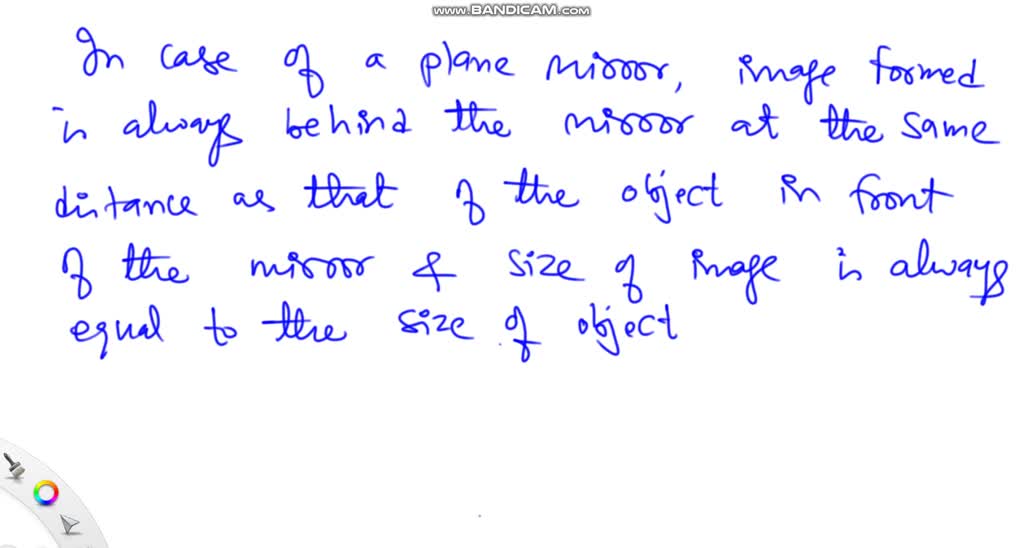 www.BANDICAM.com
In case of a plane mirror, image formed
is always behind the mirror at the same
distance as that of the object in front
of the mirror & size of image is always
equal to the size of object